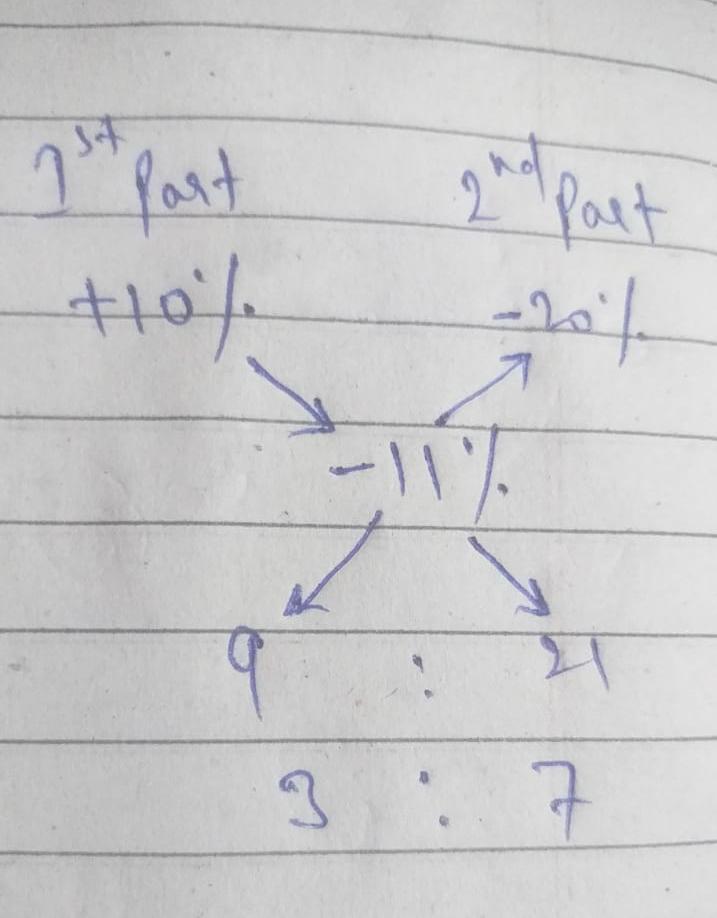 1st Part 2nd Part
+10% -20%
-11%
9 : 21
3 : 7